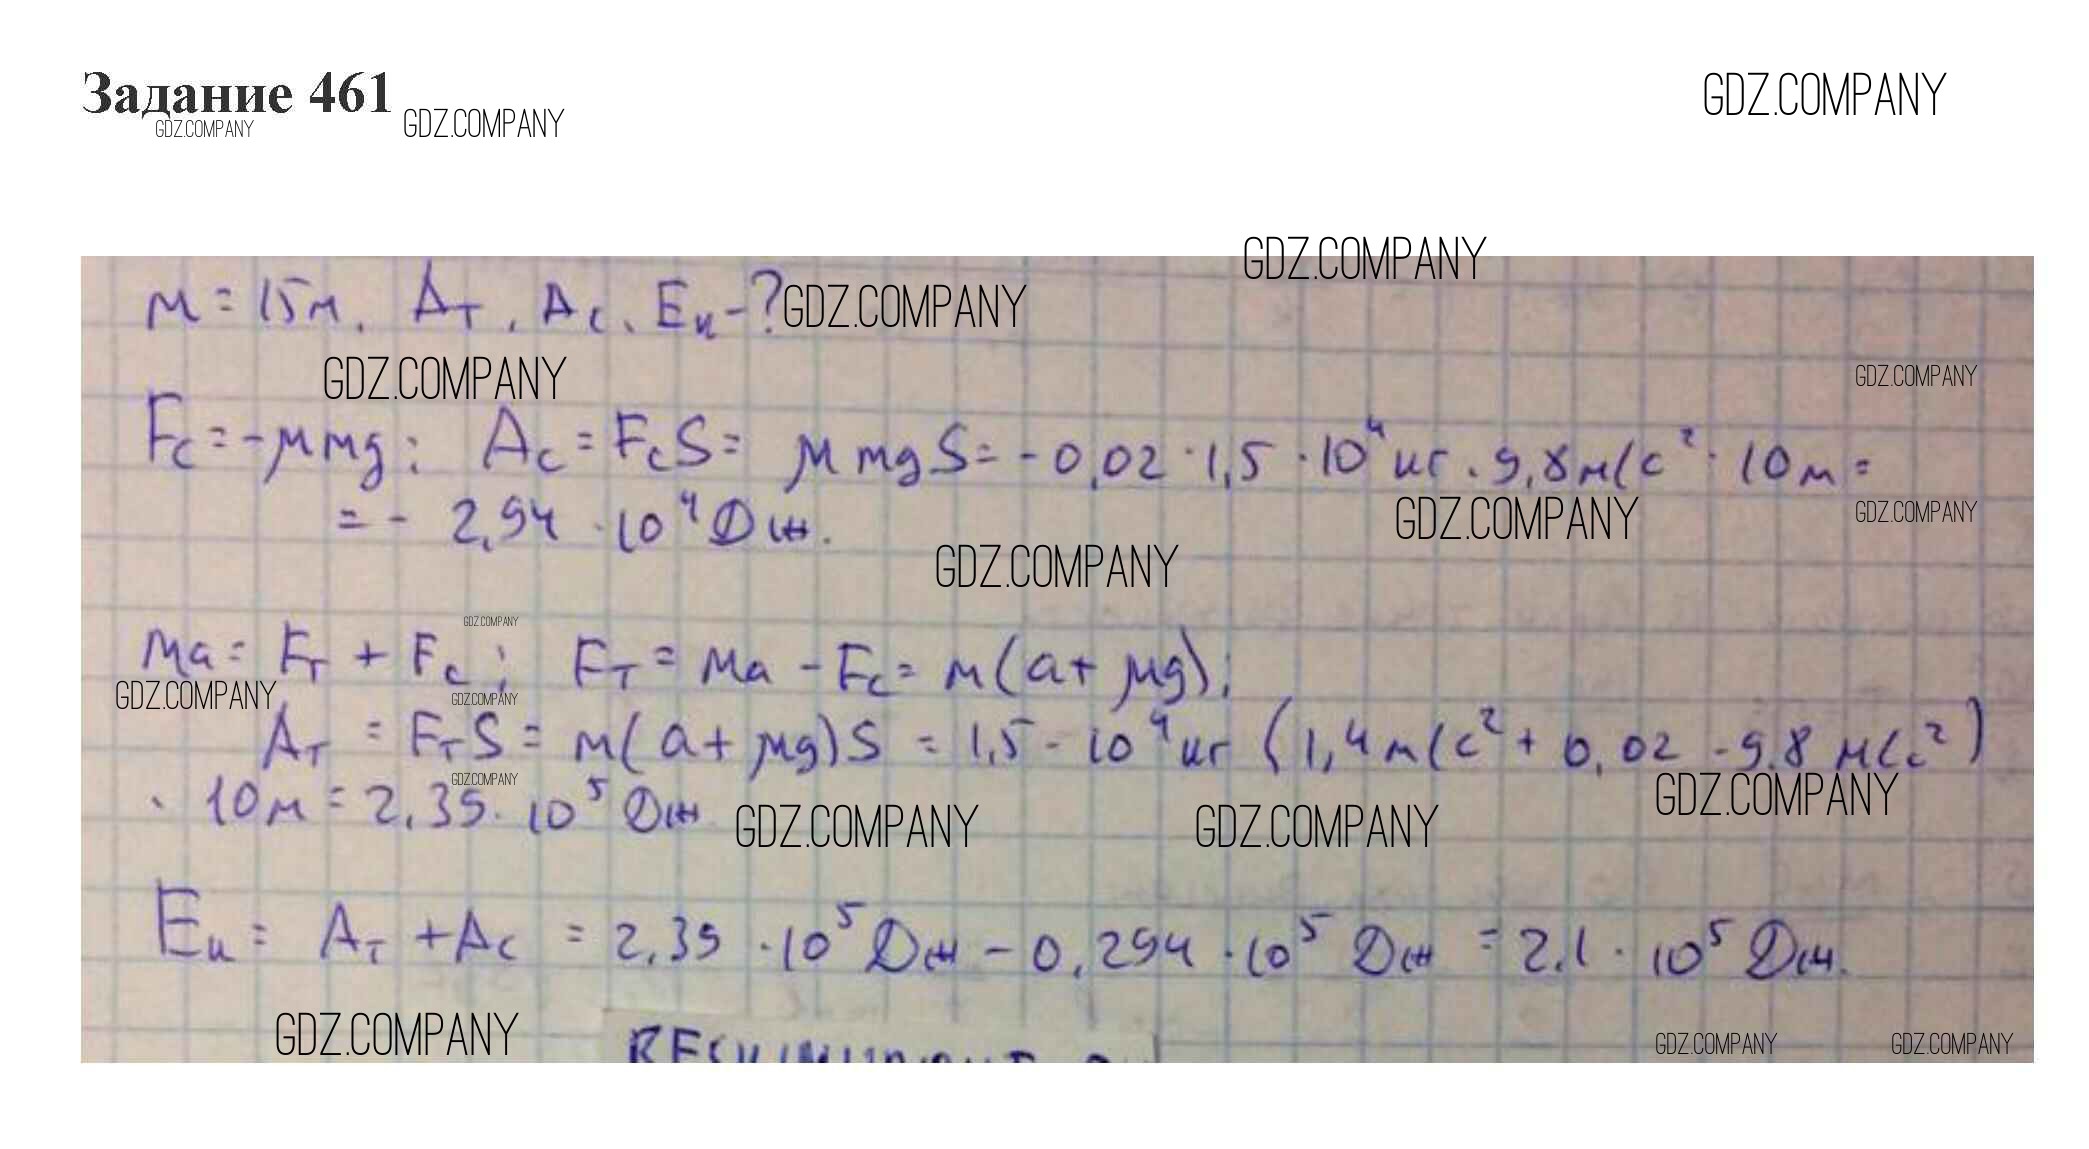 Задание 461
GDZ.COMPANY
GDZ.COMPANY
GDZ.COMPANY
GDZ.COMPANY
m = 15м. Aт, Ac, Eк - ?
GDZ.COMPANY
GDZ.COMPANY
GDZ.COMPANY
Fc = -μmg; Ac = FcS = μmgS = -0,02 · 1,5 · 10⁴ кг · 9,8 м/с² · 10 м =
= - 2,94 · 10⁴ Дж.
GDZ.COMPANY
GDZ.COMPANY
GDZ.COMPANY
GDZ.COMPANY
ma = Fт + Fc; Fт = ma - Fc = m(a + μg);
GDZ.COMPANY
GDZ.COMPANY
Aт = FтS = m(a + μg)S = 1,5 · 10⁴ кг (1,4 м/с² + 0,02 · 9.8 м/с²)
GDZ.COMPANY
· 10м = 2,39 · 10⁵ Дж
GDZ.COMPANY
GDZ.COMPANY
GDZ.COMPANY
Eк = Aт + Ac = 2,39 · 10⁵ Дж - 0,294 · 10⁵ Дж = 2,1 · 10⁵ Дж.
GDZ.COMPANY
GDZ.COMPANY
GDZ.COMPANY